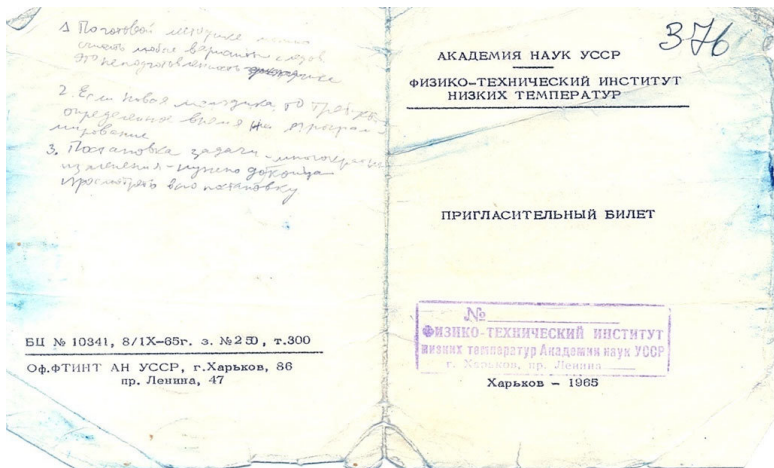 1 По готовой методике
любые варианты
2. Если новая методика, то
определение время на
мирование
3. Постановка задачи -
изменения - нужно
просмотреть всю постановку
БЦ № 10341, 8/IX-65г. з. №250, т.300
Оф.ФТИНТ АН УССР, г.Харьков, 86
пр. Ленина, 47
376
АКАДЕМИЯ НАУК УССР
ФИЗИКО-ТЕХНИЧЕСКИЙ ИНСТИТУТ
НИЗКИХ ТЕМПЕРАТУР
ПРИГЛАСИТЕЛЬНЫЙ БИЛЕТ
№
ФИЗИКО-ТЕХНИЧЕСКИЙ ИНСТИТУТ
низких температур Академии наук УССР
г. Харьков, пр. Ленина
Харьков - 1965